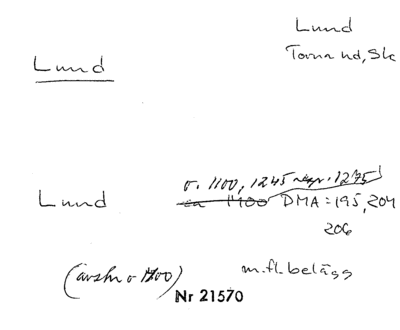 Lund
Torna hd, Sk
Lund
o. 1100, 1245 resp. 1275
Lund ca 1100 DMA: 195, 204
206
(avskr o 1200) m.fl. belägg
Nr 21570